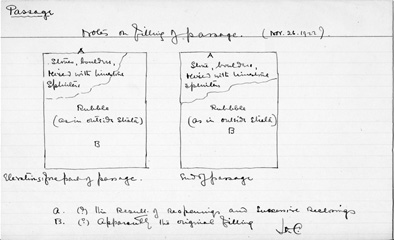 Passage
Notes on filling of passage. (Nov. 26. 1922)
A
Stones, boulders,
mixed with limestone
splinters
Rubble
(as in outside strata)
B
A
Stone, boulders,
mixed with limestone
splinters
Rubble
(as in outside strata)
B
Elevations fore part of passage.
End of passage
A. (?) the Result of reopenings and successive reclosings
B. (?) Apparently the original filling